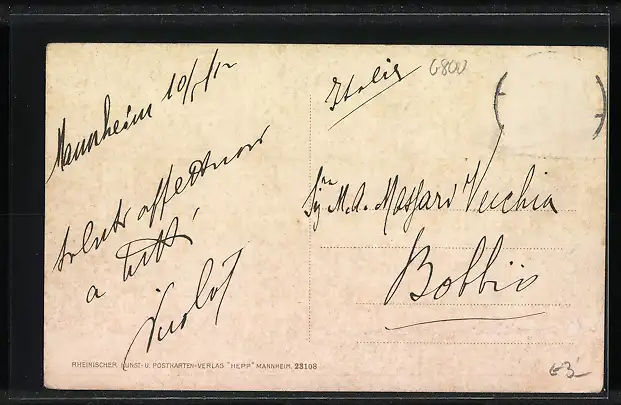 Mannheim 10/5/12
Saluti affettuosi
a tutti
Italia
6800
Sigra M. A. Massari Vecchia
Bobbio
RHEINISCHER KUNST- U. POSTKARTEN-VERLAG "HEPP" MANNHEIM. 23108